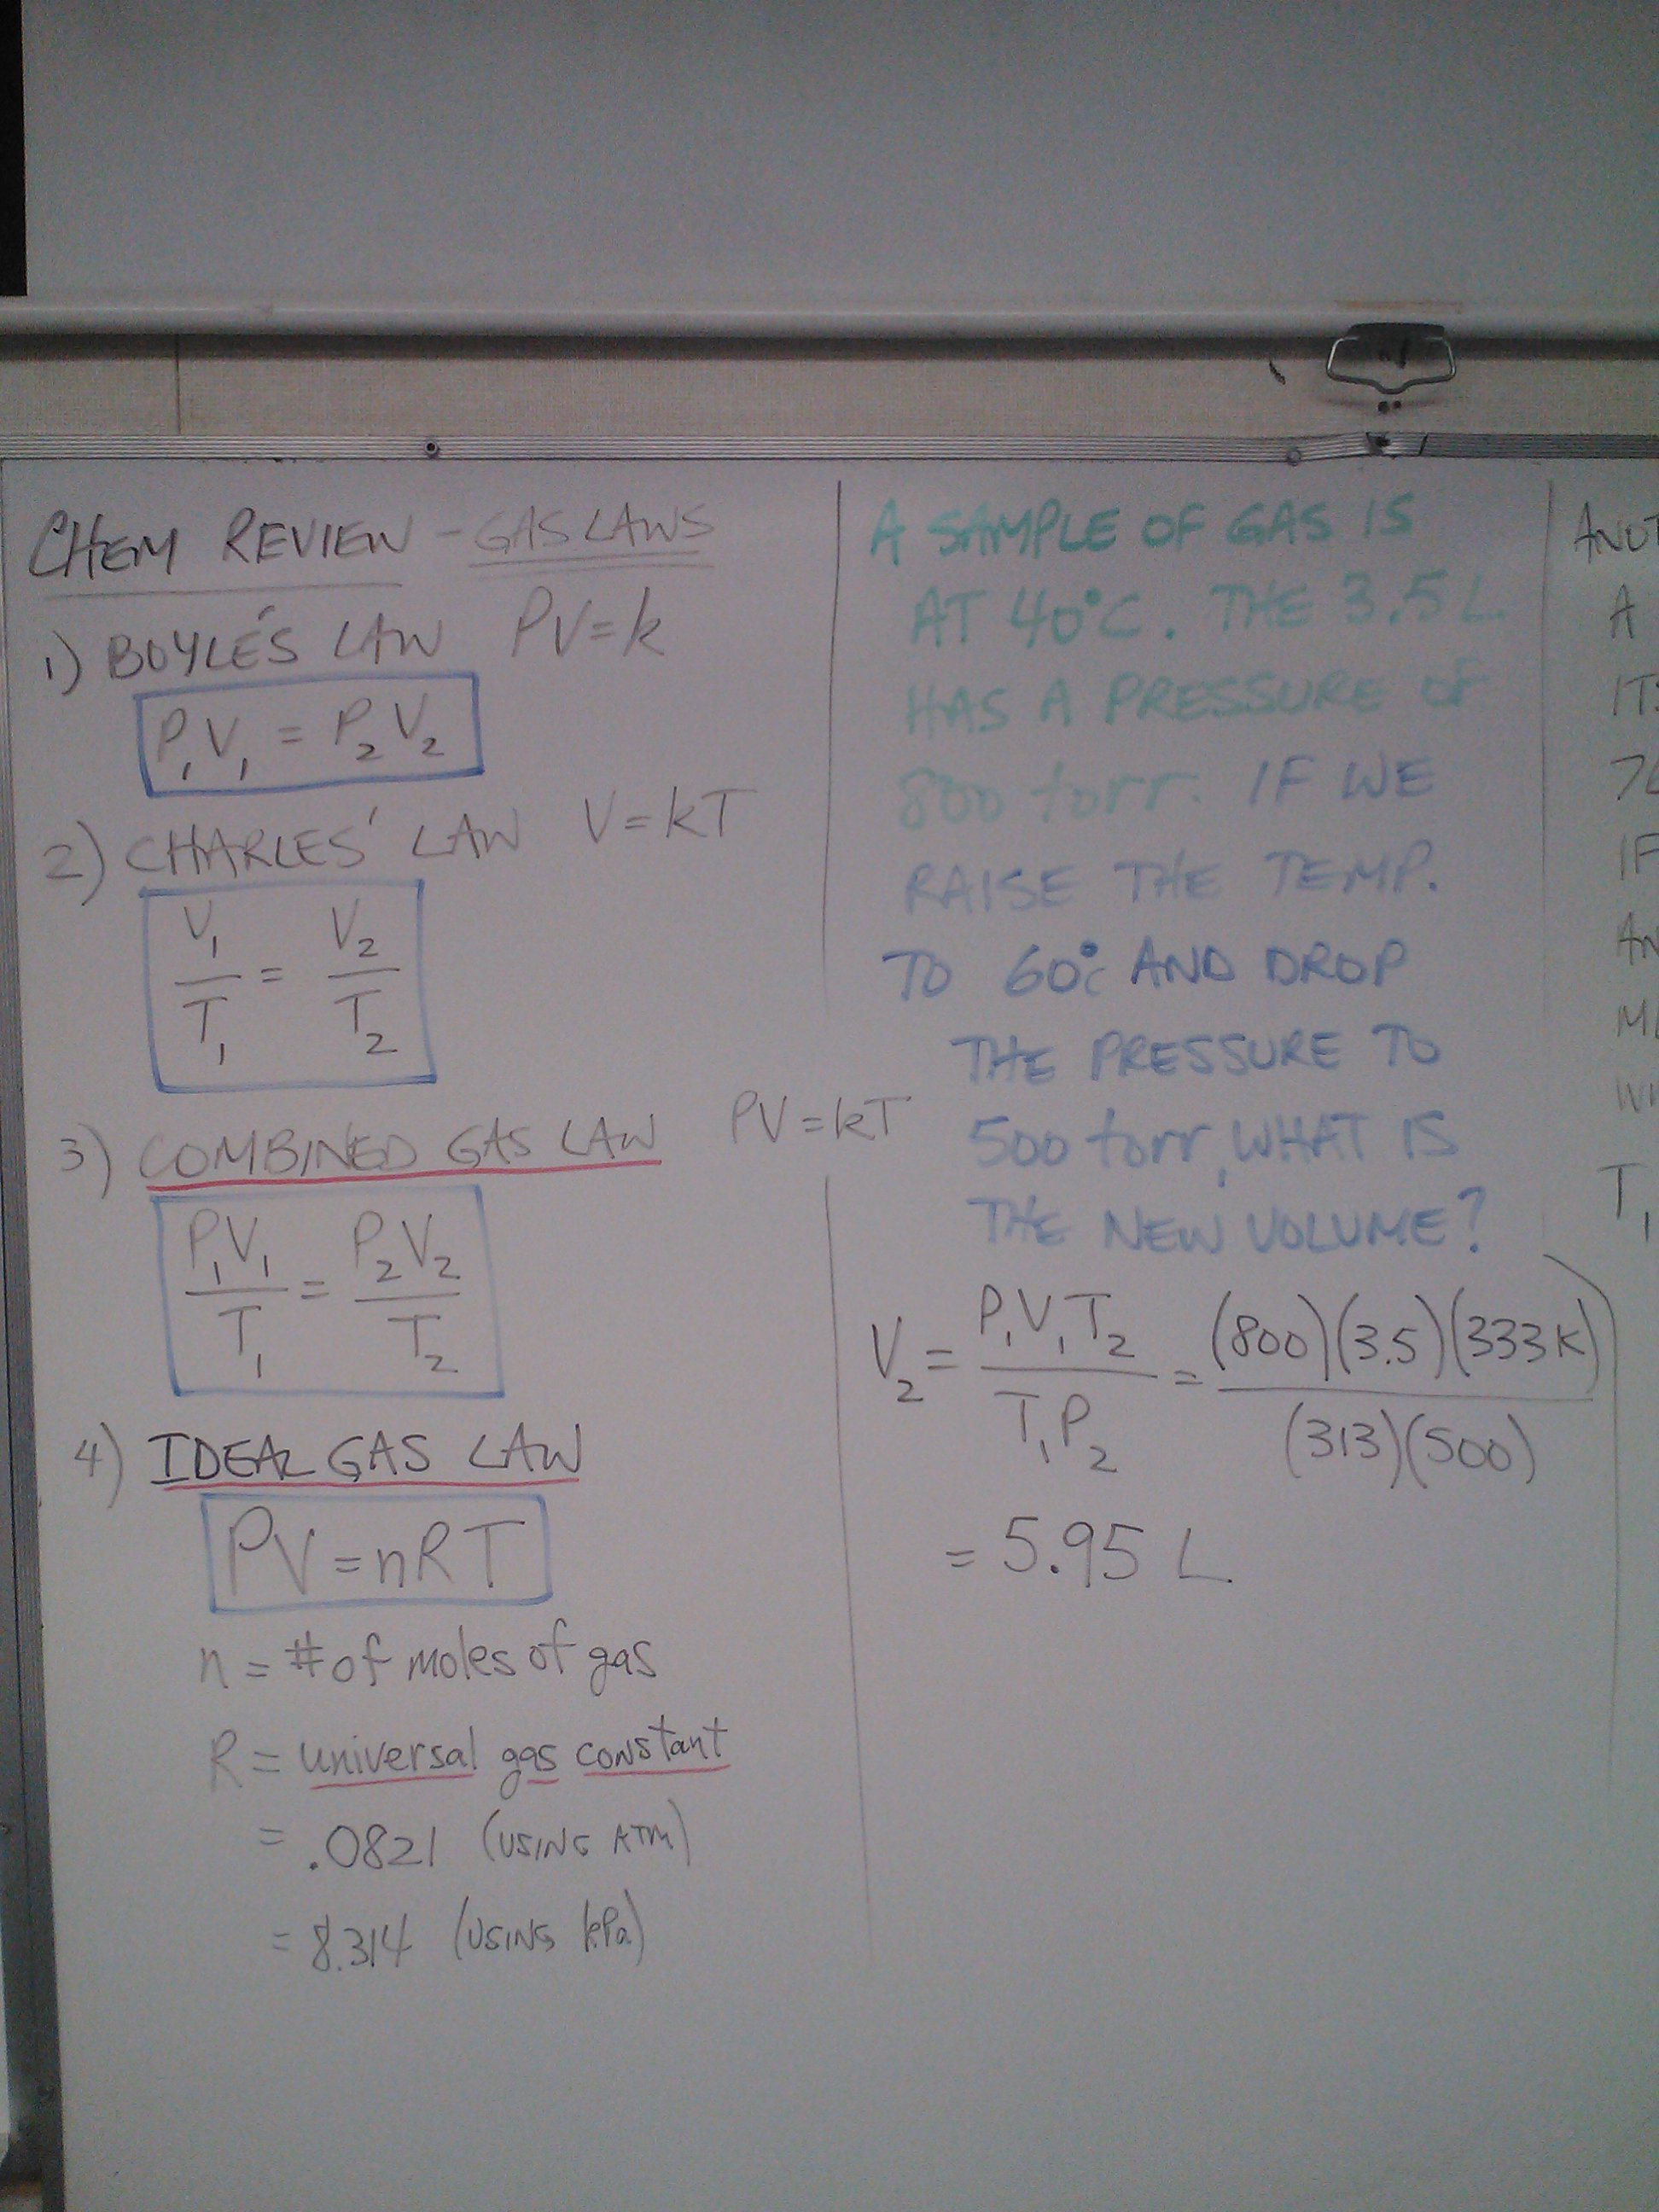 CHEM REVIEW - GAS LAWS
1) BOYLE'S LAW PV=k
P₁V₁ = P₂V₂
2) CHARLES' LAW V=kT
V₁/T₁ = V₂/T₂
3) COMBINED GAS LAW PV=kT
P₁V₁/T₁ = P₂V₂/T₂
4) IDEAL GAS LAW
PV=nRT
n = # of moles of gas
R = universal gas constant
= .0821 (USING ATM)
= 8.314 (USING kPa)
A SAMPLE OF GAS IS
AT 40°C. THE 3.5 L
HAS A PRESSURE OF
800 torr. IF WE
RAISE THE TEMP.
TO 60°C AND DROP
THE PRESSURE TO
500 torr, WHAT IS
THE NEW VOLUME?
V₂ = P₁V₁T₂/T₁P₂ = (800)(3.5)(333K)/(313)(500)
= 5.95 L
A
IF
T₁